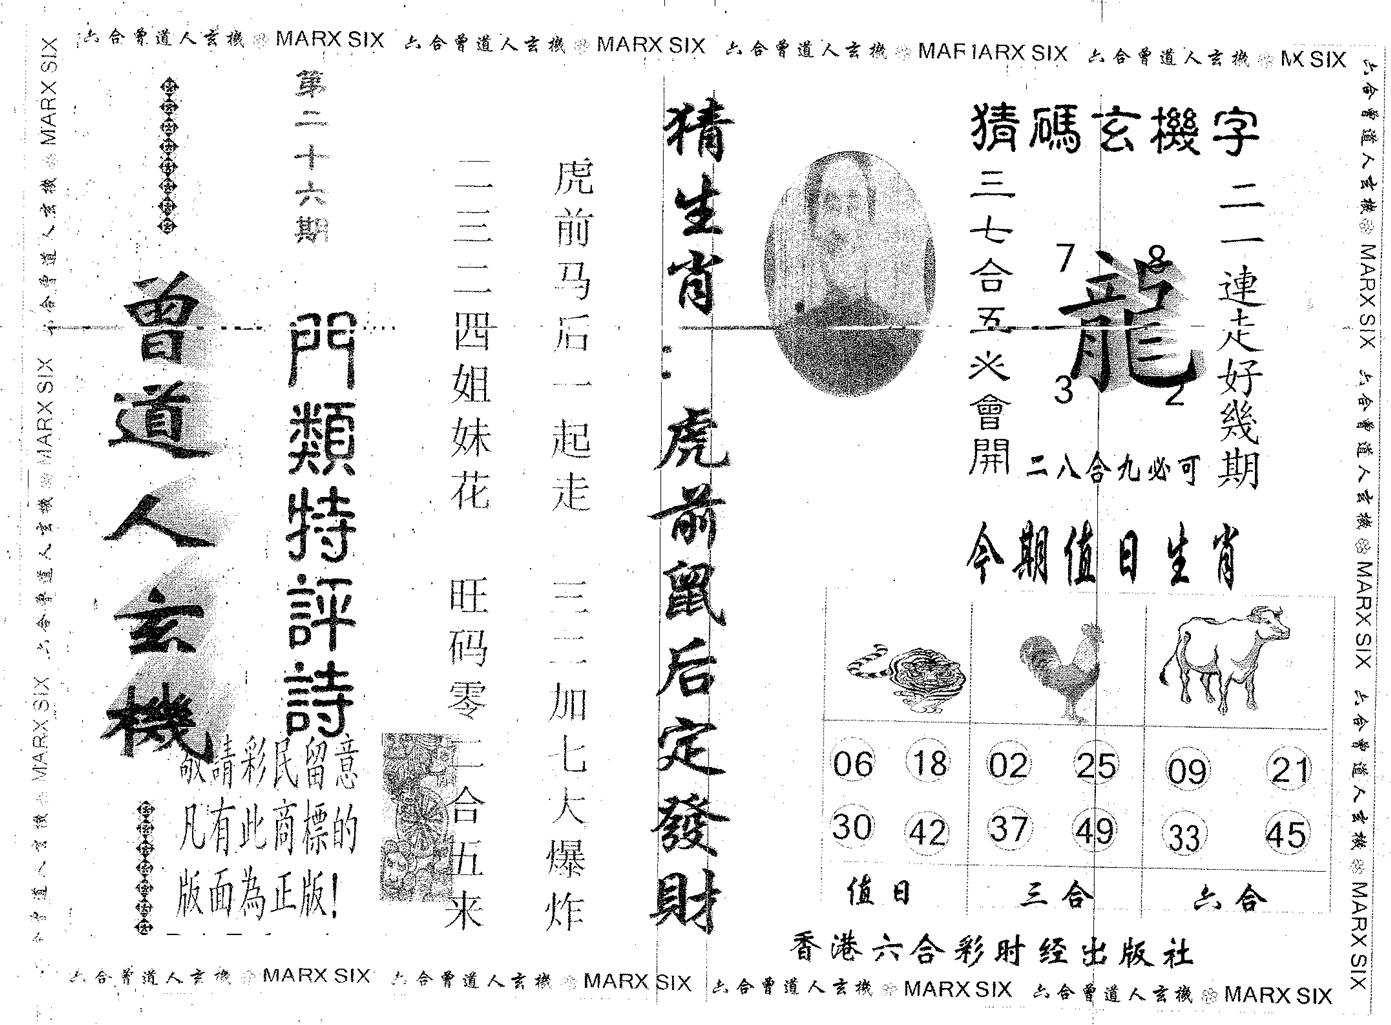 六合曾道人玄機 MARX SIX 六合曾道人玄機 MARX SIX 六合曾道人玄機 MAF1ARX SIX 六合曾道人玄機 MX SIX
六合曾道人玄機 MARX SIX 六合曾道人玄機 MARX SIX 六合曾道人玄機 MARX SIX
猜碼玄機字
二一連走好幾期
7 8
龍
3 2
三七合五必會開
二八合九必可
今期值日生肖
06 18 02 25 09 21
30 42 37 49 33 45
值日 三合 六合
香港六合彩时经出版社
猜生肖：虎前鼠后定發財
虎前马后一起走 三二加七大爆炸
二三二四姐妹花 旺码零二合五来
第二十六期
門類特評詩
曾道人玄機
敬請彩民留意
凡有此商標的
版面為正版!
六合曾道人玄機 MARX SIX 六合曾道人玄機 MARX SIX 六合曾道人玄機 MARX SIX
六合曾道人玄機 MARX SIX 六合曾道人玄機 MARX SIX 六合曾道人玄機 MARX SIX 六合曾道人玄機 MARX SIX